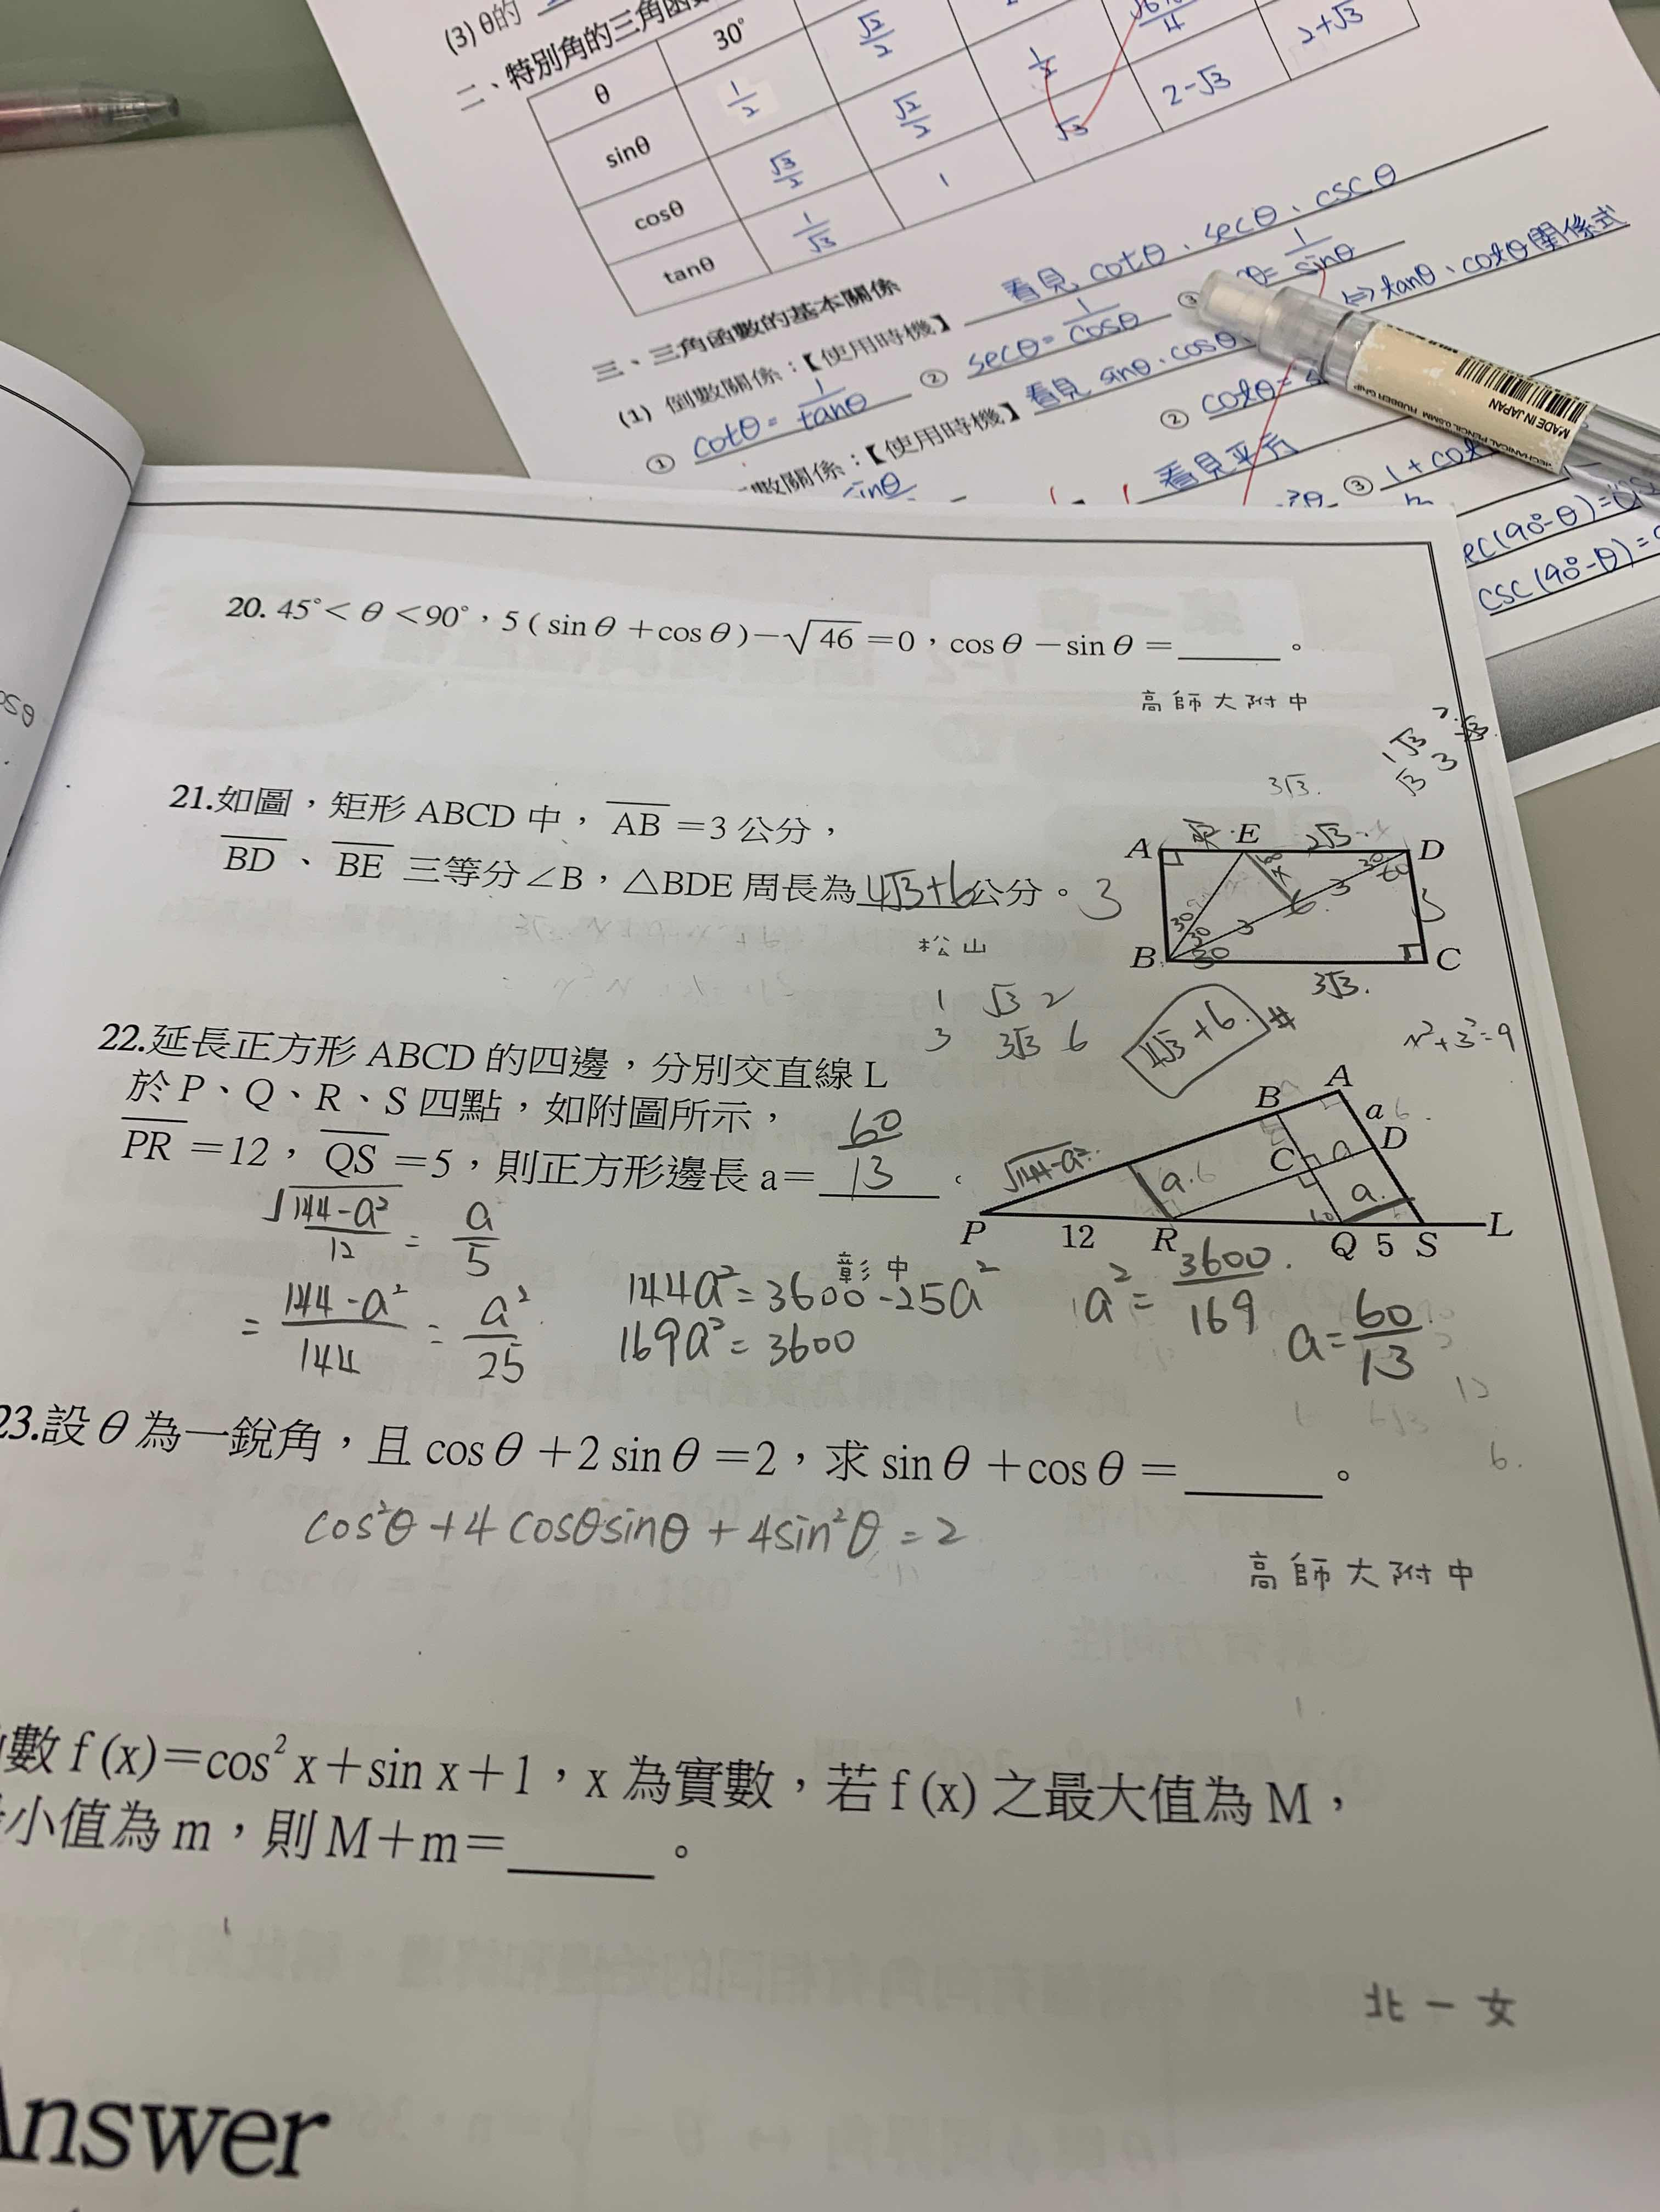 (3) θ的
二、特別角的三角函數
θ 30°
sinθ 1/2 √2/2
cosθ √3/2 √2/2 1/2
tanθ 1/√3 1 √3 2-√3 2+√3
三、三角函數的基本關係
(1) 倒數關係：【使用時機】看見 cotθ、secθ、cscθ
① cotθ = 1/tanθ ② secθ = 1/cosθ ③ 1/sinθ
數關係：【使用時機】看見 sinθ、cosθ ⇔ tanθ、cotθ 關係式
② cotθ =
看見平方
③ 1 + cot
ec(90°-θ)=
csc(90°-θ)=
MADE IN JAPAN
20. 45°< θ <90°，5 ( sin θ +cos θ )－√46 =0，cos θ －sin θ =＿＿＿。
高師大附中
21.如圖，矩形 ABCD 中，AB =3 公分，
BD、BE 三等分∠B，△BDE 周長為 4√3+6 公分。
松山
A E D
B C
3√3
2√3
3
30 30 30
3√3.
1 √3 2
3 3√3 6
4√3+6. #
x²+3²=9
22.延長正方形 ABCD 的四邊，分別交直線 L
於 P、Q、R、S 四點，如附圖所示，
PR =12，QS =5，則正方形邊長 a= 60/13
彰中
A B a D C
√144-a²
a.6 a a.
P 12 R Q 5 S L
√144-a²/12 = a/5
= 144-a²/144 = a²/25
144a²=3600-25a²
169a²=3600
a²=3600/169.
a=60/13
23.設 θ 為一銳角，且 cos θ +2 sin θ =2，求 sin θ +cos θ =＿＿＿。
cos²θ+4cosθsinθ+4sin²θ=2
高師大附中
數 f (x)=cos² x+sin x+1，x 為實數，若 f (x) 之最大值為 M，
小值為 m，則 M+m=＿＿＿。
北一女
Answer